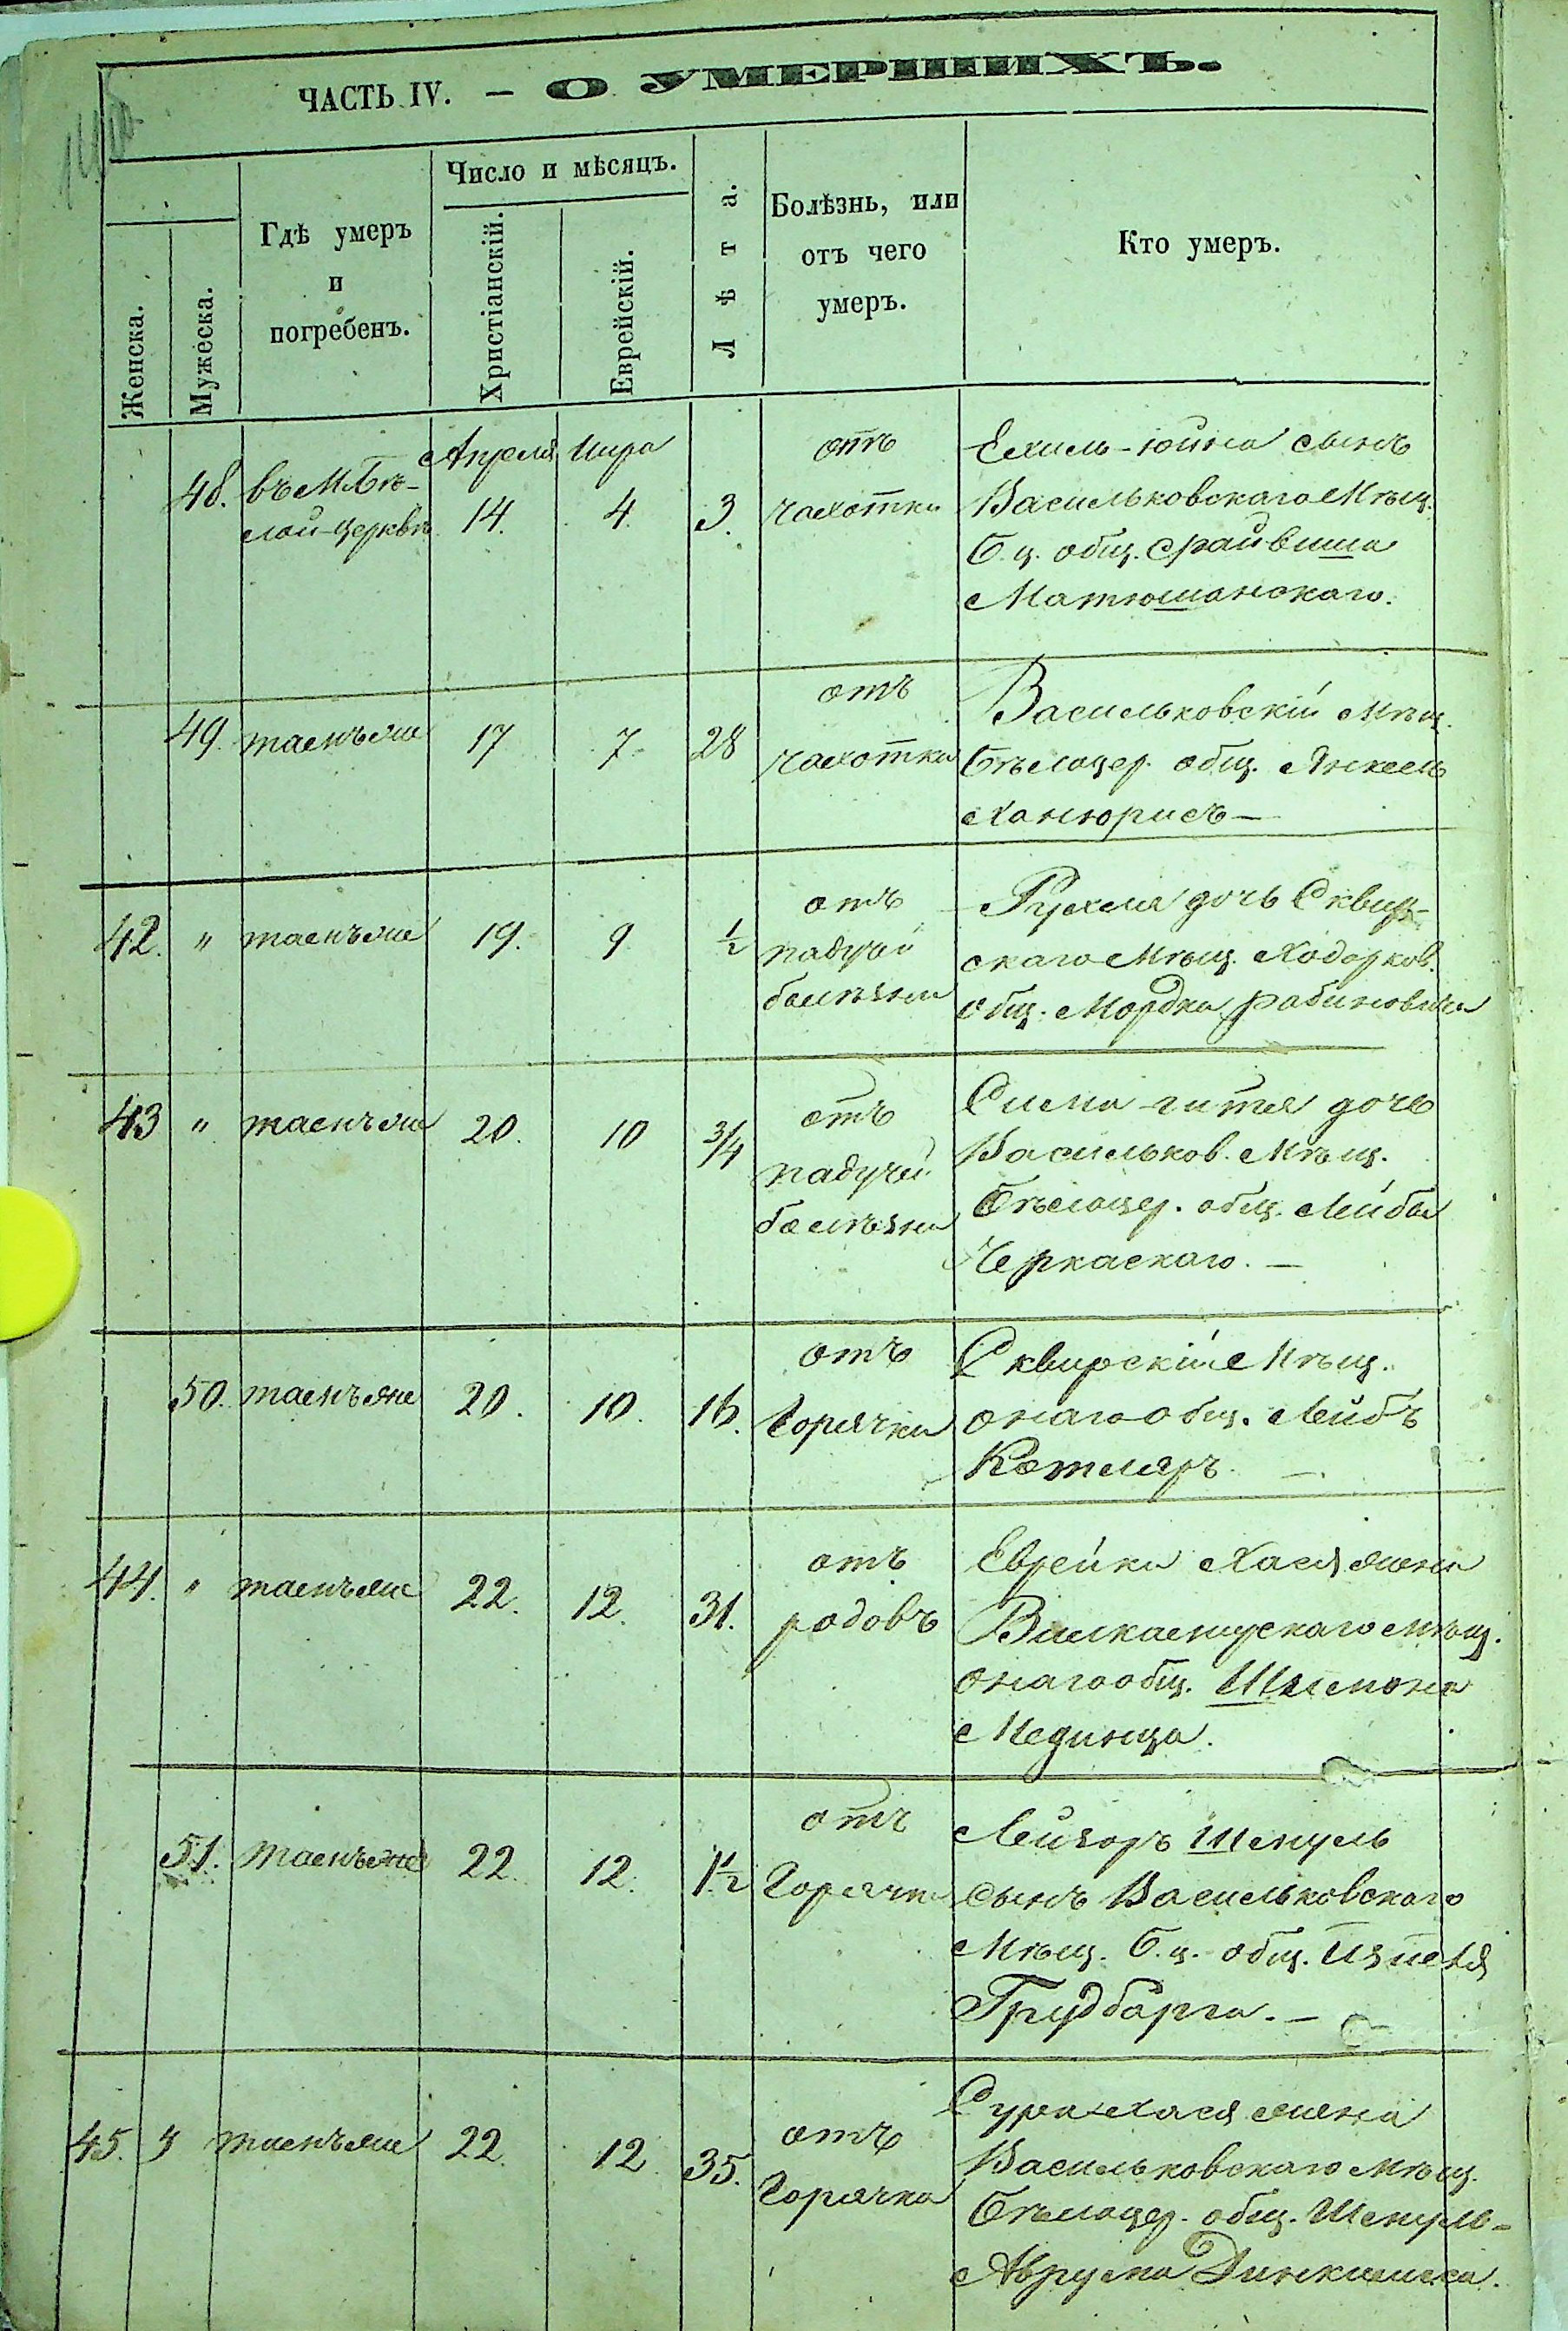 ЧАСТЬ IV. — О УМЕРШИХЪ.
Женска.
Мужеска.
Гдѣ умеръ
и
погребенъ.
Число и мѣсяцъ.
Христіанскій.
Еврейскій.
Лѣта.
Болѣзнь, или
отъ чего
умеръ.
Кто умеръ.
Апреля Иира
48. въ М. Бѣ-
лой-Церквѣ 14. 4. 3.
отъ
чахотки
Ехиль-Юйна сынъ
Васильковскаго Мѣщ.
Б. ц. общ. Срайвиша
Матюшанскаго.
49. таенъже 17 7 28
отъ
чахотки
Васильковскій Мѣщ.
Бѣлоцер. общ. Янкель
Ханюрисъ —
42. " таенъже 19. 9 ½
отъ
падучей
болѣзни
Рухля дочь Сквир-
скаго Мѣщ. Ходорков.
общ. Мордка Рабиновича
43 " таенъже 20. 10 3/4
отъ
падучей
болѣзни
Сима-гитля дочь
Васильков. Мѣщ.
Бѣлоцер. общ. Лейбы
Черкаскаго. —
50. таенъже 20. 10. 16.
отъ
Горячки
Сквирскій Мѣщ.
онаго общ. Лейбъ
Котляръ. —
44. " таенъже 22. 12. 31.
отъ
родовъ
Еврейка Хася жена
мѣщ.
онаго общ. Шлемона
Мединца.
51. таенъже 22. 12. 1½
отъ
Горячки
Лейзоръ Шмуль
сынъ Васильковскаго
Мѣщ. Б. ц. общ.
Грудбарга. —
45. " таенъже 22. 12 35.
отъ
Горячка
Сура-Хася жена
Васильковскаго мѣщ.
Бѣлоцер. общ. Шмуль-
Аврума